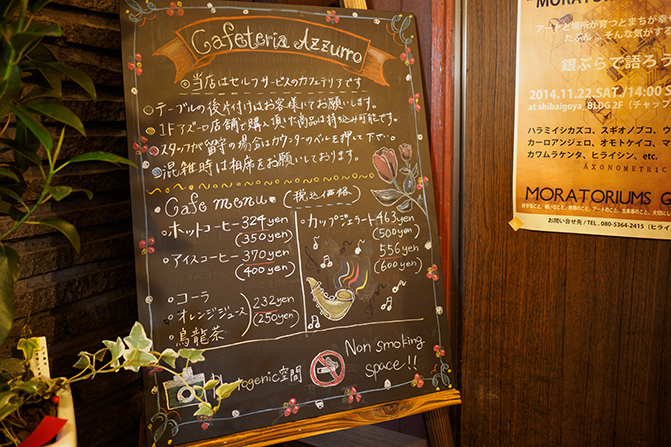 Cafeteria Azzurro
◎当店はセルフサービスのカフェテリアです
◦テーブルの後片付けはお客様にてお願いします。
◦1Fアズーロ店舗で購入頂いた商品は持込み可能です。
◦スタッフが留守の場合はカウンターのベルを押して下さい。
◦混雑時は相席をお願いしております。
Cafe menu。(税込価格)
◦ホットコーヒー 324yen
(350yen)
◦アイスコーヒー 370yen
(400yen)
◦コーラ
◦オレンジジュース
◦烏龍茶
232yen
(250yen)
◦カップジェラート 463yen
(500yen)
556yen
(600yen)
togenic空間
Non smoking
space!!
MORATORIUMS
アートと場所が育つとまちが幸
たぶん、そんな気がする
銀ぶらで語ろう
2014.11.22.SAT. /14:00 S
at shibaigoya BLDG 2F (チャッ
ハラミイシカズコ、スギオノブコ、
カーロアンジェロ、オモトケイコ、マ
カワムラケンタ、ヒライシン、etc.
AXONOMETRIC
MORATORIUMS G
お問い合せ先 / TEL . 080-5364-2415 (ヒライ